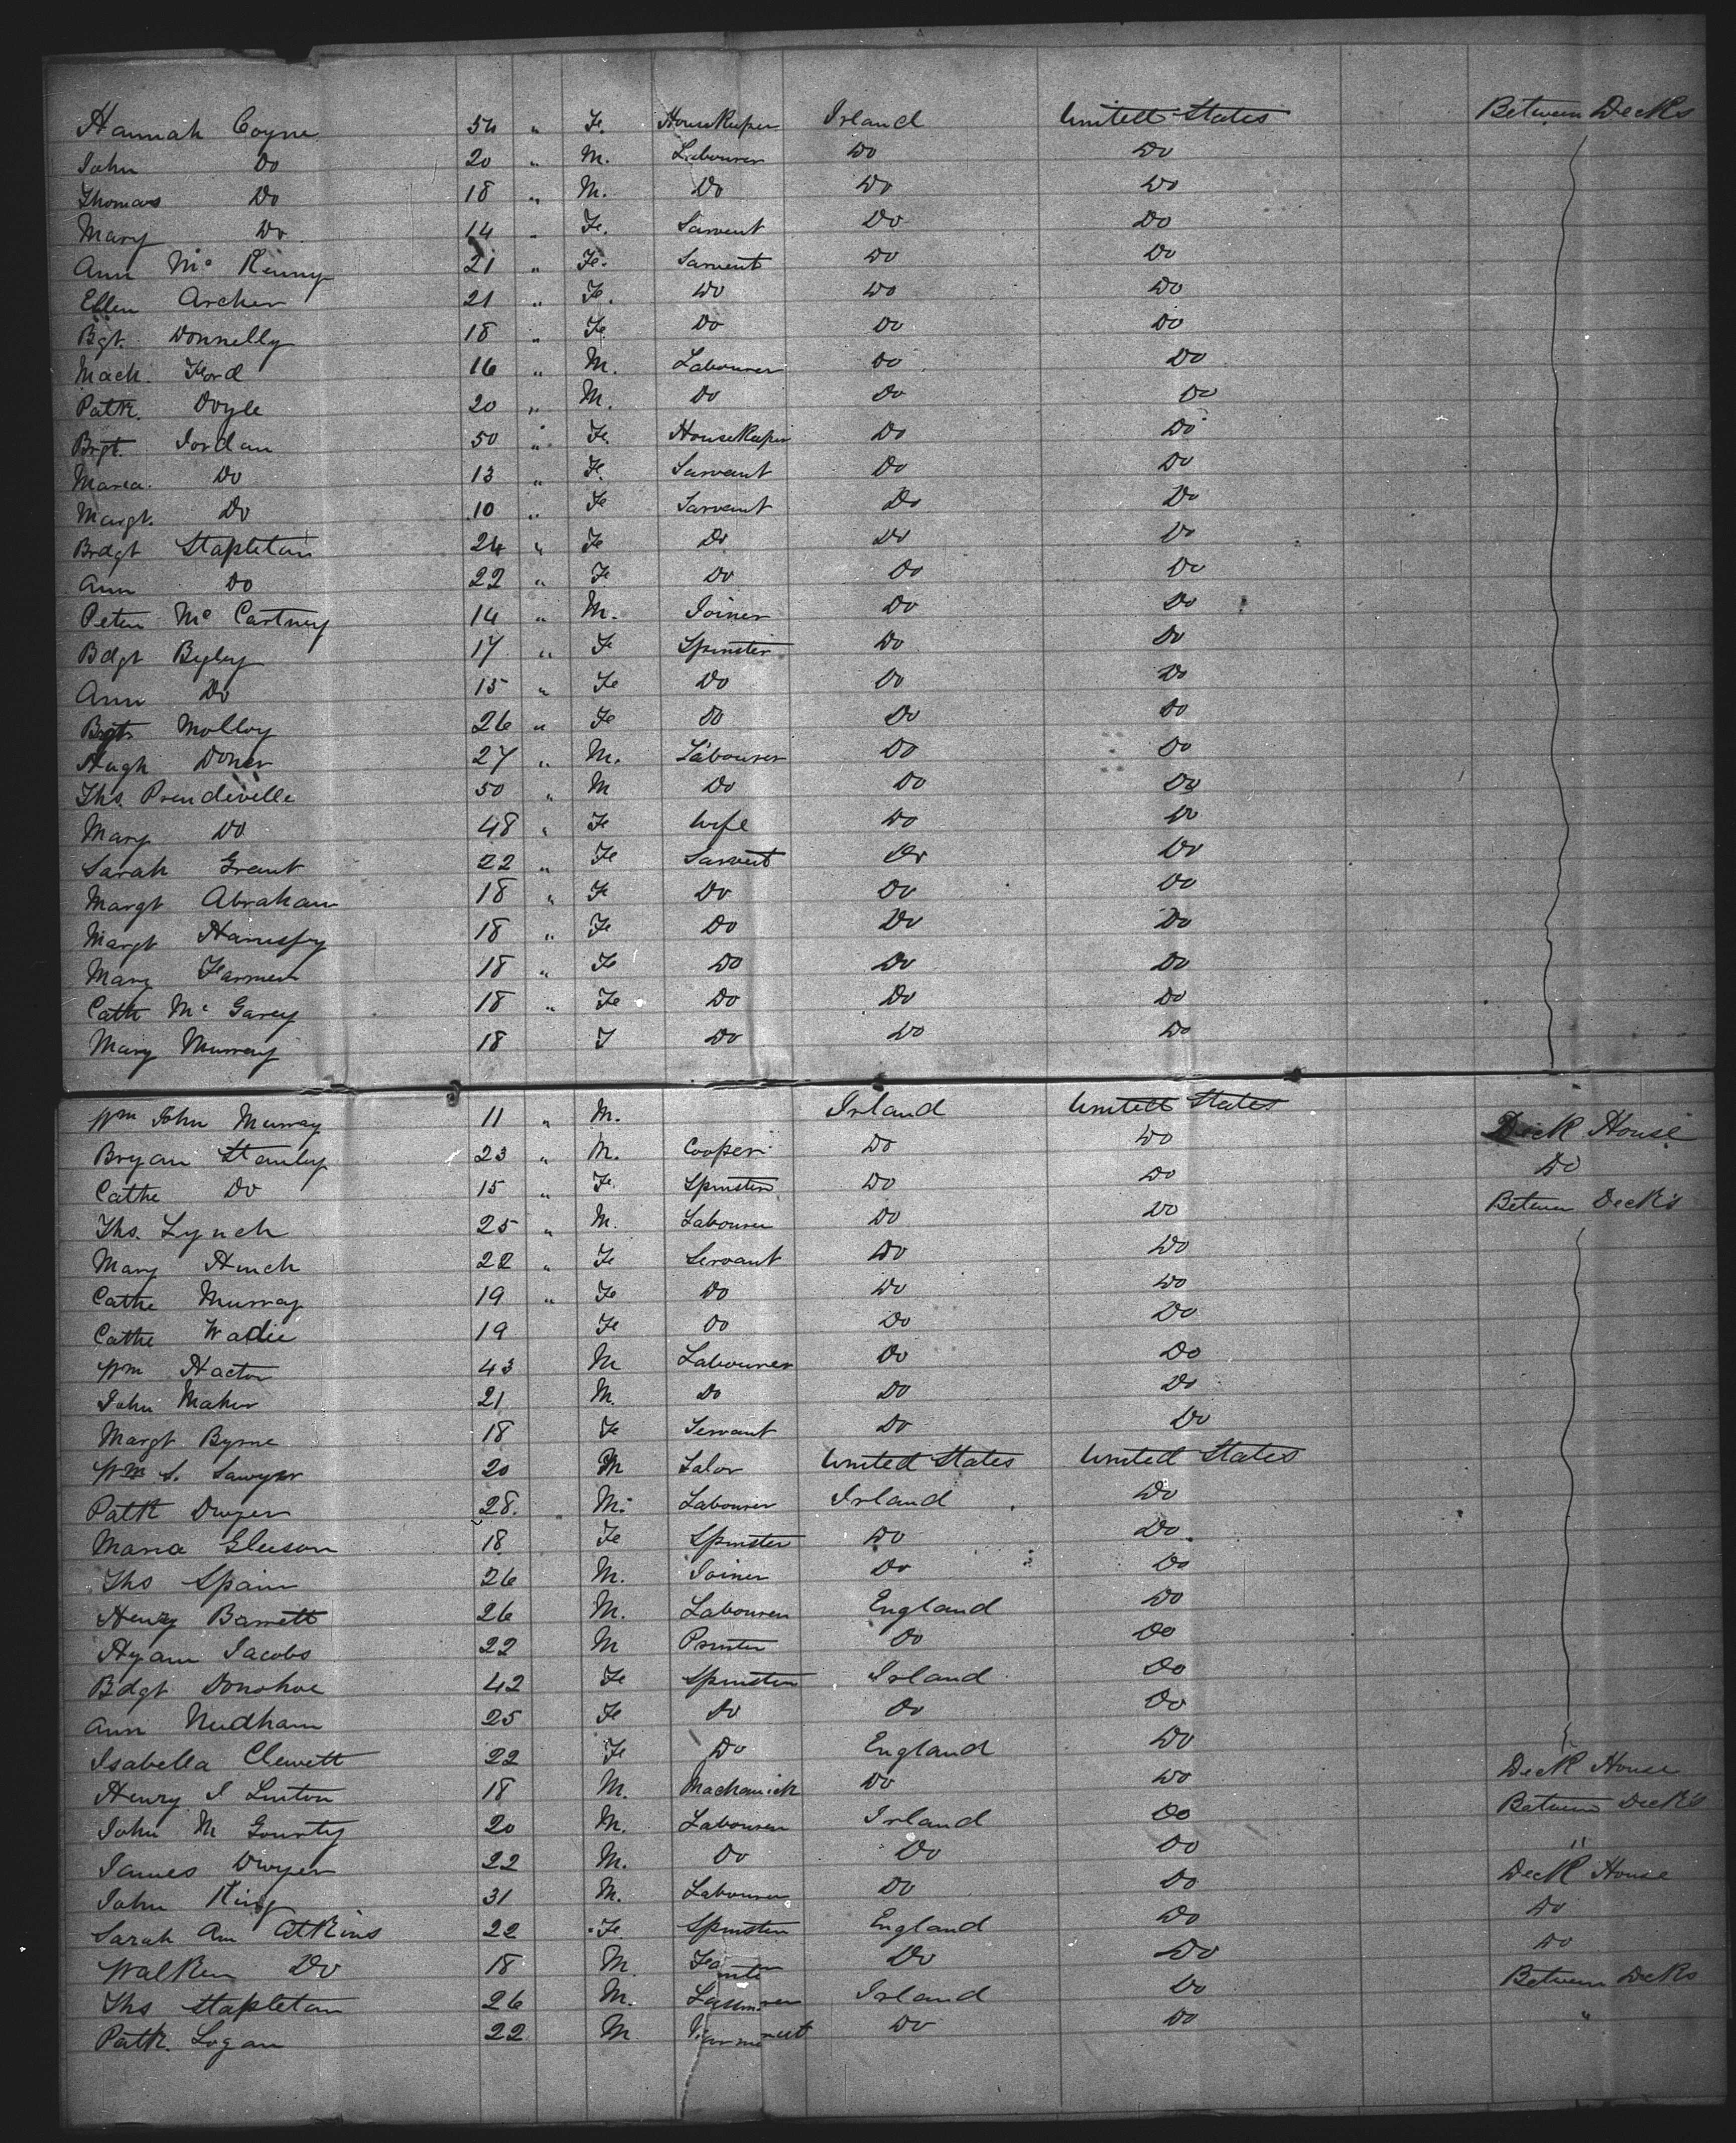 Hannah Coyne 54 " Fe. Housekeeper Irland United States Between Decks
John Do 20 " M. Labourer Do Do
Thomas Do 18 " M. Do Do Do
Mary Do 14 " Fe. Sarvent Do Do
Ann Mc Kenny 21 " Fe. Sarvent Do Do
Ellen Archer 21 " Fe. Do Do Do
Bgt. Donnelly 18 " Fe. Do Do Do
Mach. Ford 16 " M. Labourer Do Do
Patk. Doyle 20 " M. Do Do Do
Brgt. Jordan 50 " Fe. Housekeeper Do Do
Maria. Do 13 " Fe. Sarvant Do Do
Margt. Do 10 " Fe Sarvant Do Do
Brdgt Stapleton 24 " Fe Do Do Do
Ann Do 22 " Fe Do Do Do
Peter Mc Cartney 14 " M. Joiner Do Do
Bdgt 17 " Fe Spinster Do Do
Ann Do 15 " Fe Do Do Do
Brgt Molloy 26 " Fe Do Do Do
Hugh Doner 27 " M. Labourer Do Do
Ths. Prendeville 50 " M Do Do Do
Mary Do 48 " Fe Wife Do Do
Sarah Grant 22 " Fe Sarvent Do Do
Margt Abraham 18 " Fe Do Do Do
Margt 18 " Fe Do Do Do
Mary 18 " Fe Do Do Do
Cath Mc Garey 18 " Fe Do Do Do
Mary Murray 18 F Do Do Do
Wm John Murray 11 " M. Irland United States Deck House
Bryan Stanley 23 " M. Cooper Do Do Do
Cathe Do 15 " Fe. Spinster Do Do Between Deck's
Ths. Lynch 25 " M. Labourer Do Do
Mary Hinch 22 " Fe Servant Do Do
Cathe Murray 19 " Fe Do Do Do
Cathe Wadie 19 Fe Do Do Do
Wm Hactor 43 M Labourer Do Do
John Maher 21 M. Do Do Do
Margt Byrne 18 Fe Servant Do Do
Wm S. Sawyer 20 M Salor United States United States
Patk Dwyer 28. M. Labourer Irland Do
Maria Gleeson 18 Fe Spinster Do Do
Ths Spain 26 M. Joiner Do Do
Henry Barrett 26 M. Labourer England Do
Hyam Jacobs 22 M Printer Do Do
Bdgt Donohoe 42 Fe Spinster Irland Do
Ann Needham 25 Fe Do Do Do
Isabella Clewett 22 Fe Do England Do
Henry J Linton 18 M. Machanick Do Do Deck House
John M Gourty 20 M. Labourer Irland Do Between Deck's
James Dwyer 22 M. Do Do Do "
John King 31 M. Labourer Do Do Deck House
Sarah Ann Atkins 22 Fe. Spinster England Do Do
Walker Do 18 M. Do Do Do
Ths Stapleton 26 M. Irland Do Between Decks
Patk. Logan 22 M Do Do "